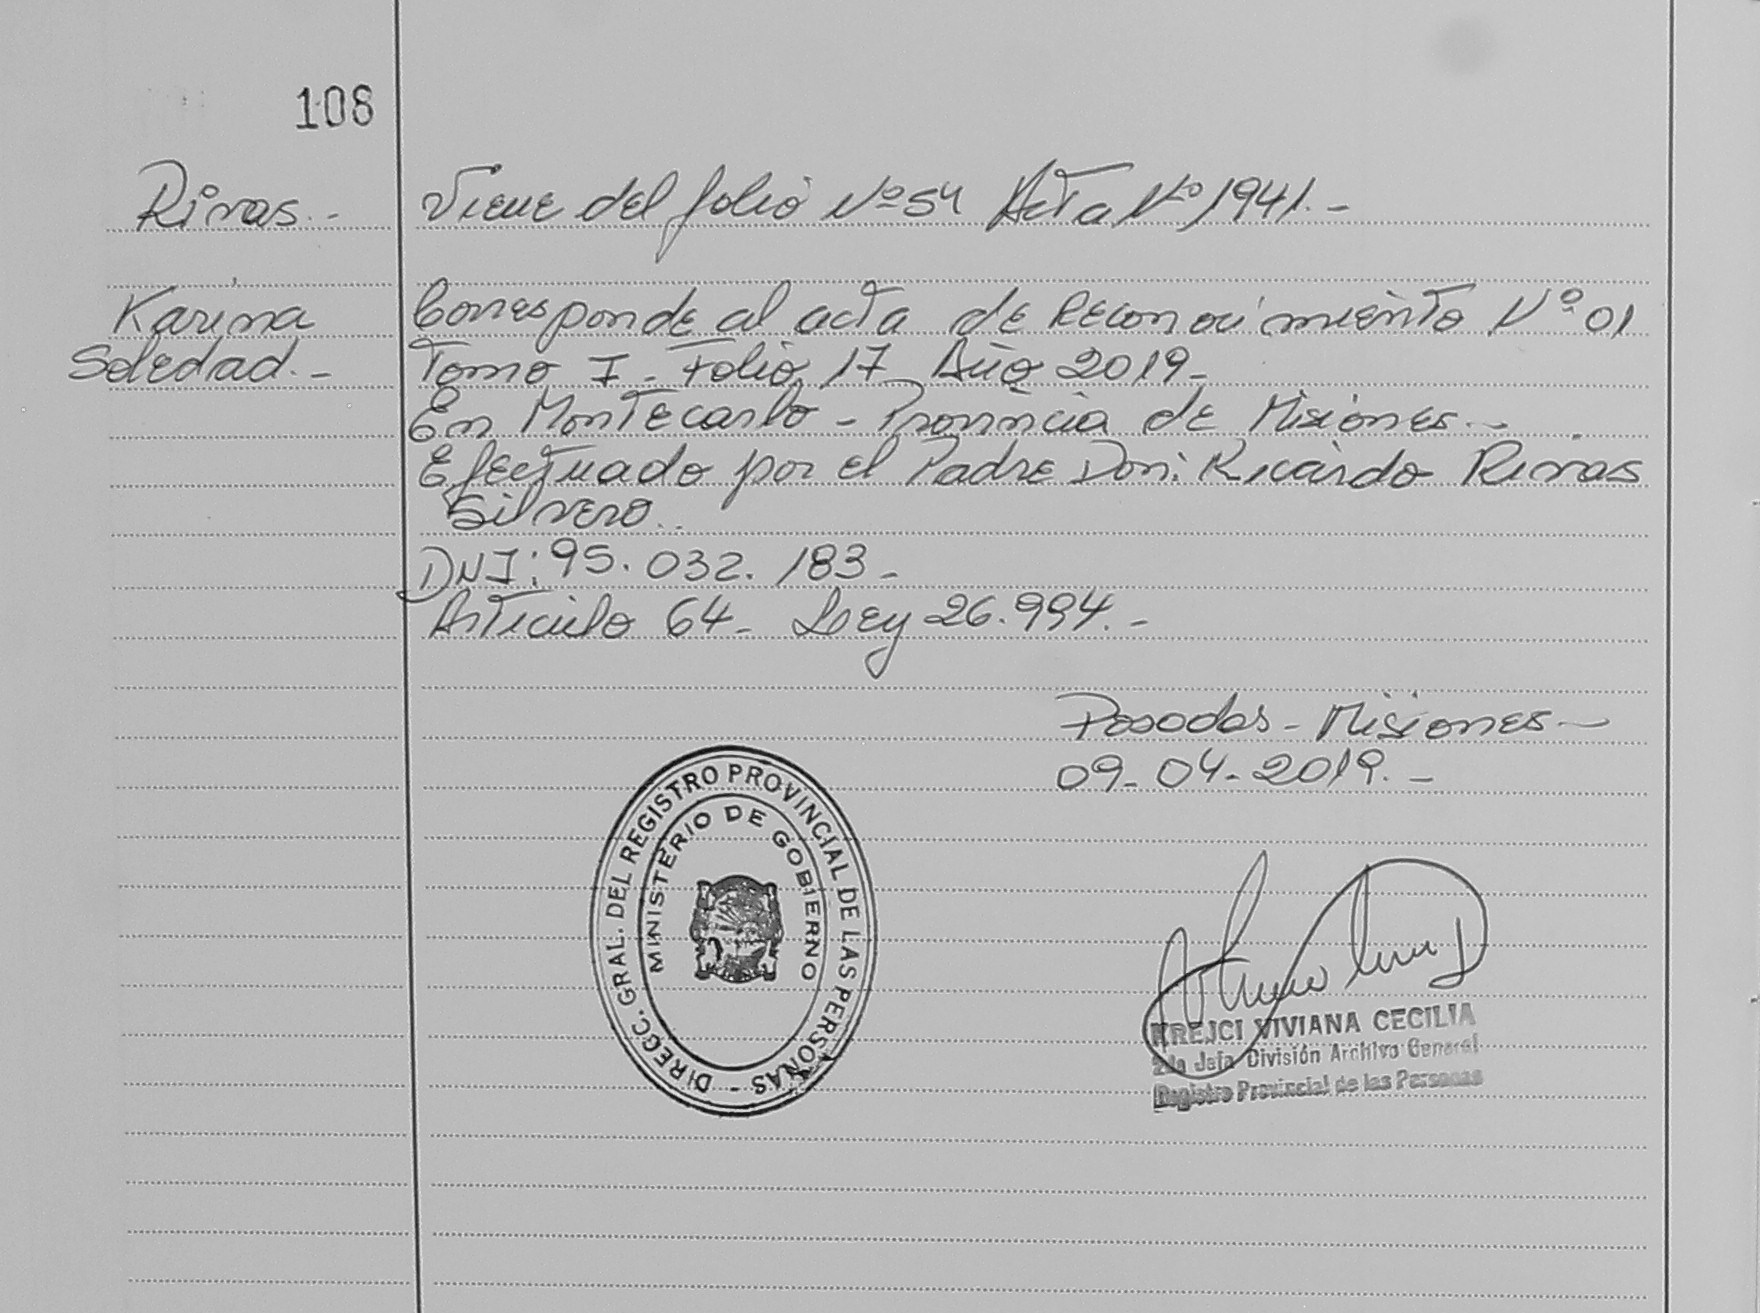 108
Rivas.-
Viene del folio Nº 54 Acta Nº 1941.-
Karina
Soledad.-
Corresponde al acta de Reconocimiento Nº 01
Tomo I - Folio 17 Año 2019-
En Montecarlo - Provincia de Misiones.-
Efectuado por el Padre Don: Ricardo Rivas
Silvero..
DNI: 95.032.183-
Artículo 64- Ley 26.994.-
Posadas - Misiones-
09-04-2019.-
DIREC. GRAL. DEL REGISTRO PROVINCIAL DE LAS PERSONAS -
MINISTERIO DE GOBIERNO
KREJCI VIVIANA CECILIA
2da Jefa División Archivo General
Registro Provincial de las Personas